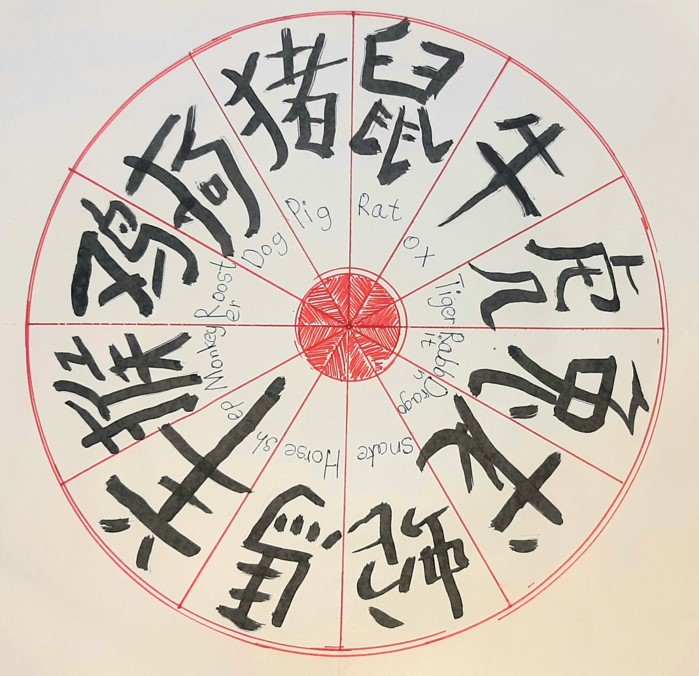 鼠
Rat
牛
OX
虎
Tiger
兔
Rabb
it
龙
Drago
n
蛇
snake
馬
Horse
羊
sh
ep
猴
Monkey
鸡
Roost
er
狗
Dog
猪
Pig